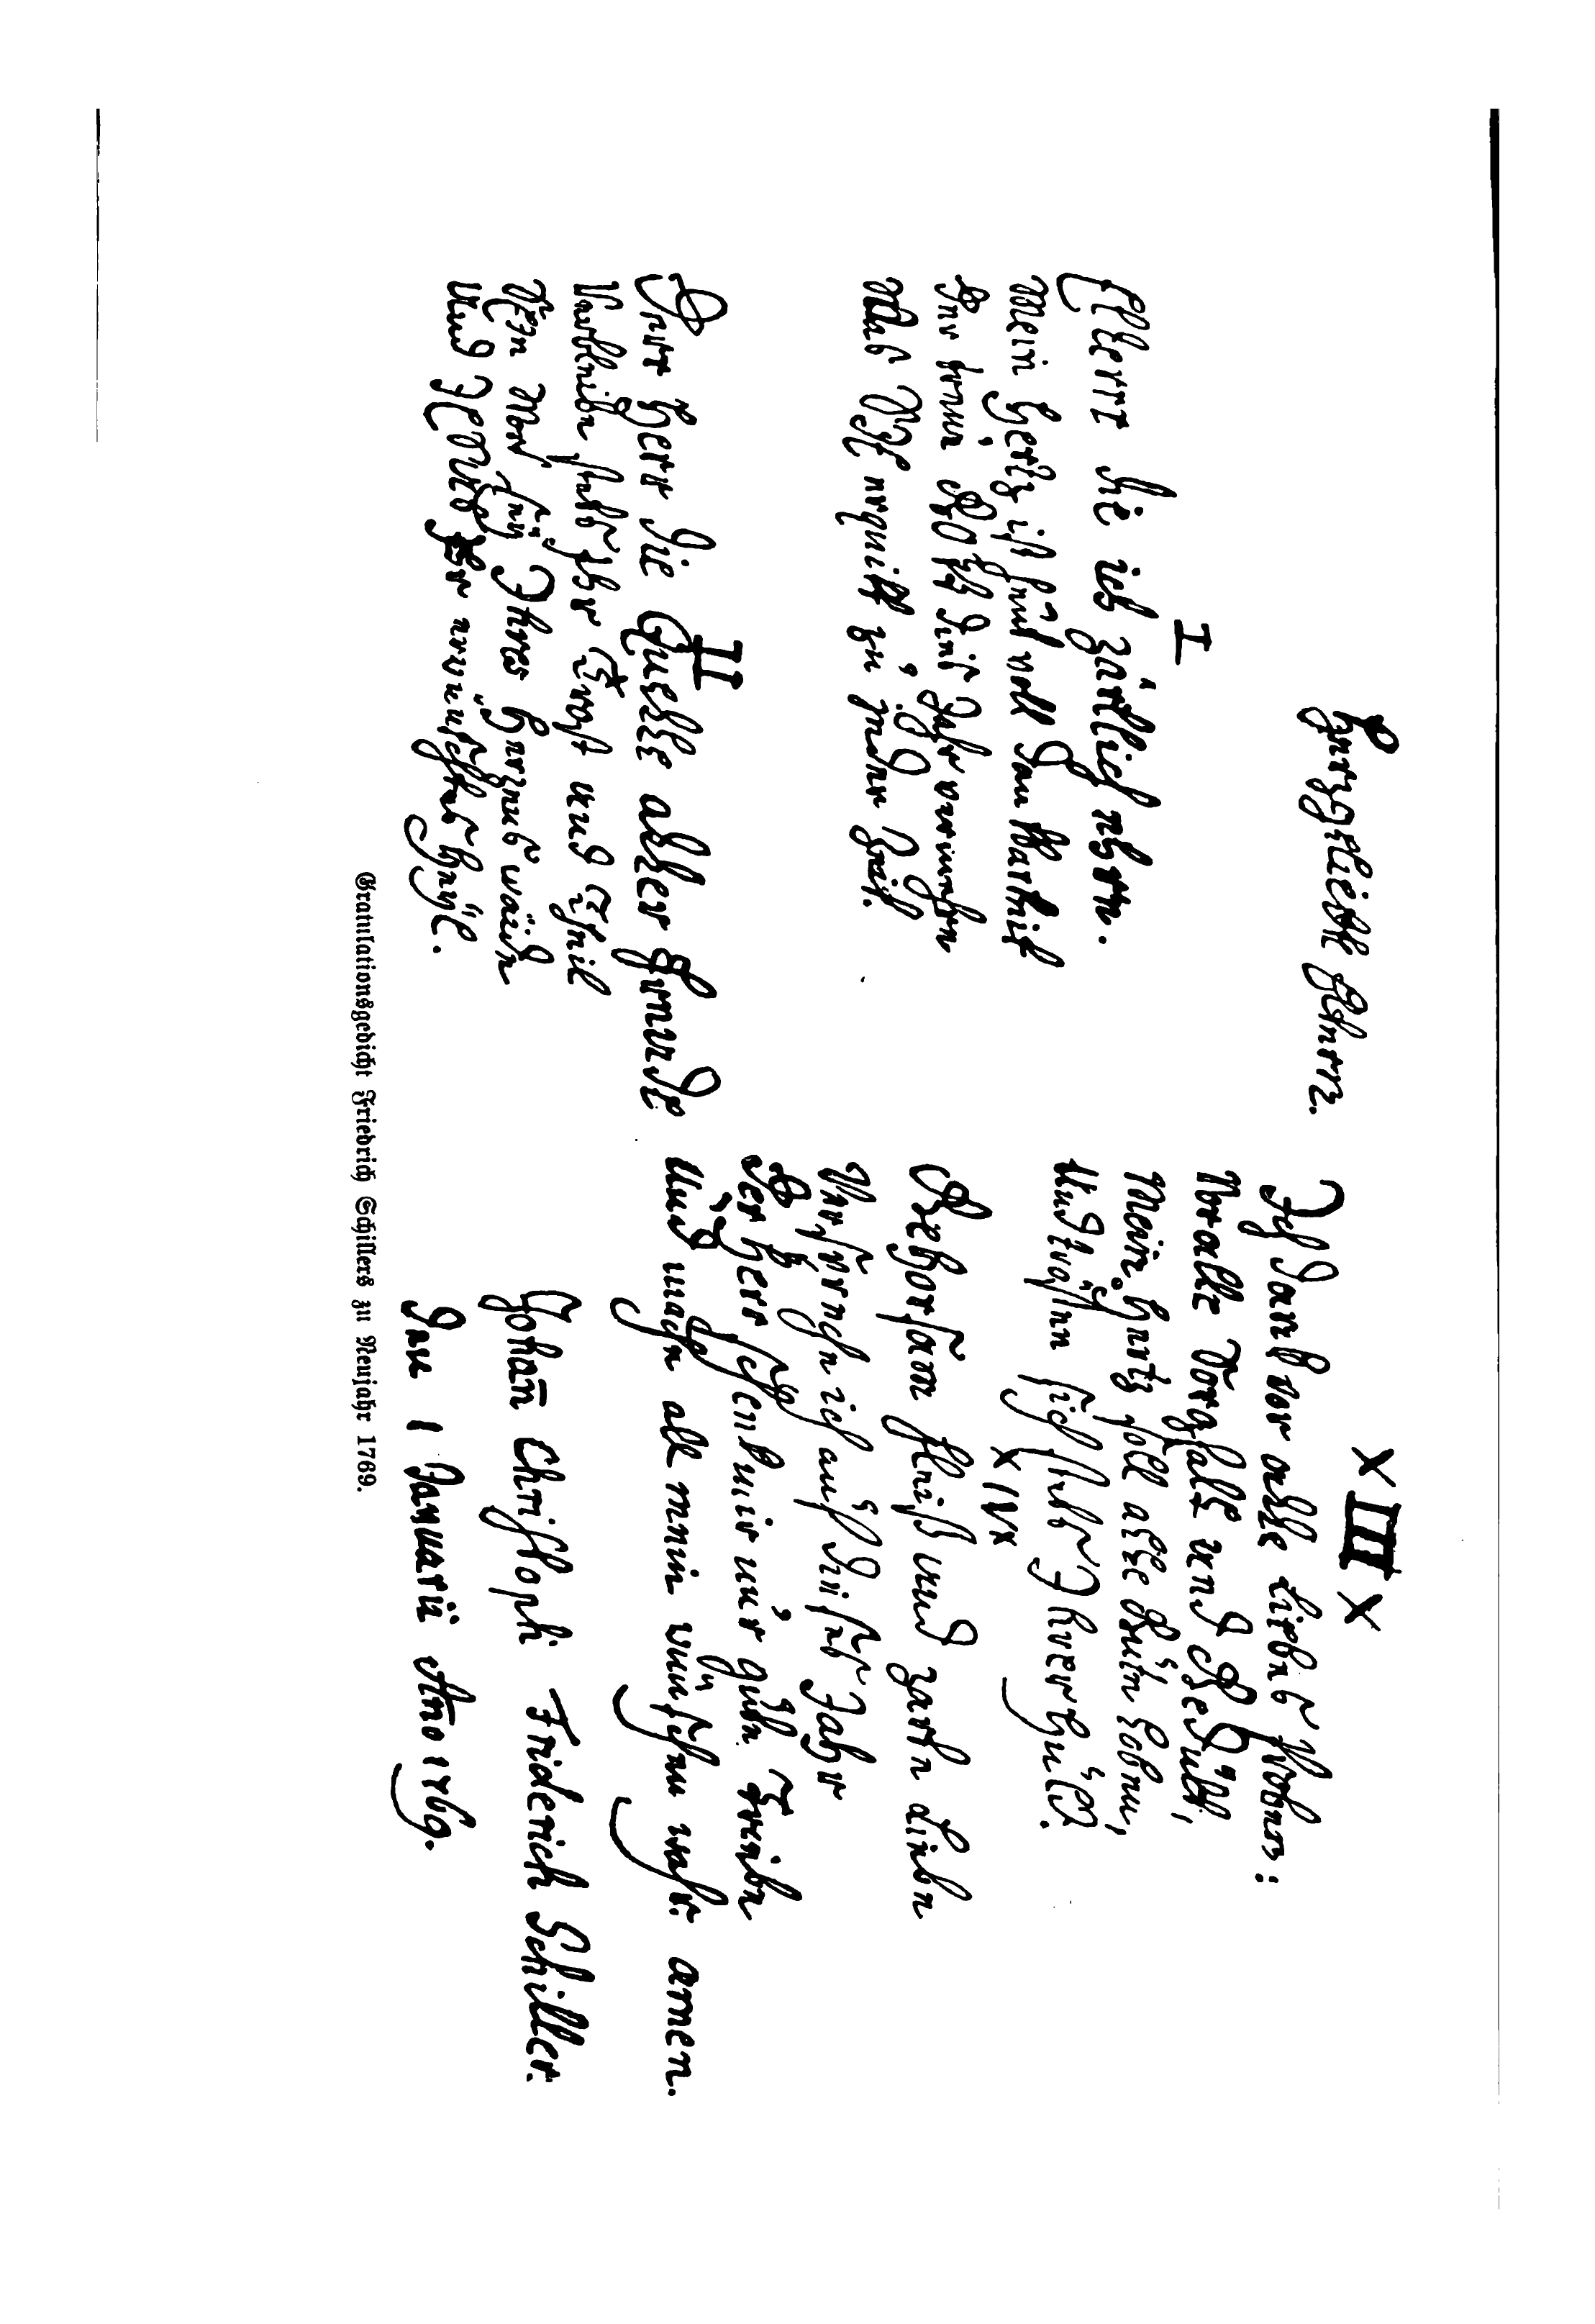 Herzgeliebte Eltern.
I
Eltern die ich zärtlich ehre.
Mein Hertz ist heut voll Dankbarkeit
Der treue Gott dies Jahr vermehre
Was Sie erquickt zu jeder Zeit.
II
Der Herr die Quelle aller Freude
Verbleibe stets Ihr Trost und Theil
Sein Wort sey Ihres Herzens Weide
Und Jesus Ihr erwünschtes Heyl.
X III X
Ich dank vor alle Liebes Proben:
Vor alle Sorgfalt und Gedult,
Mein Hertz soll alle Güte loben,
Und trösten sich stets Ihrer Huld.
X IV X
Gehorsam Fleiß und zarte Liebe
Verspreche ich auf dieses Jahr
Der Herr schenk mir nur gute Triebe
Und mache all mein wünschen wahr. amen.
Johañ Christoph Friderich Schiller.
Den 1 Januarii Ano 1769.
Gratulationsgedicht Friedrich Schillers zu Neujahr 1769.